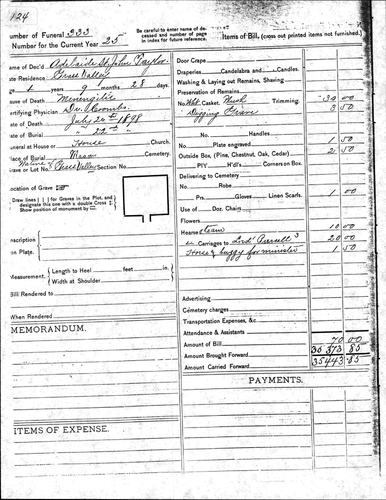 124
umber of Funeral 333
Number for the Current Year 25
Be careful to enter name of deceased and number of page in index for future reference.
Items of Bill, (cross out printed items not furnished.)
ame of Dec'd. Adelaide St John Taylor
ate Residence Grass Valley
ge 1 years 9 months 28 days
ause of Death Meningitis
ertifying Physician Dr. Coombs.
ate of Death July 20th 1898
ate of Burial " 22nd "
uneral at House or House Church.
lace of Burial Mason Cemetery.
rave or Lot No. Section No.
Grass Valley
Location of Grave
Draw lines for Graves in the Plot, and designate this one with a double Cross
Show position of monument by
scription
on Plate.
Measurement.
Length to Heel feet in.
Width at Shoulder
Bill Rendered to
When Rendered
MEMORANDUM.
ITEMS OF EXPENSE.
Door Crape
Draperies Candelabra and Candles.
Washing & Laying out Remains, Shaving
Preservation of Remains
No. Casket, Trimming, 30 00
Digging Grave 3 50
No. Handles
No. Plate engraved 1 50
Outside Box (Pine, Chestnut, Oak, Cedar) 2 50
PIY H'd'l's Corners on Box.
Delivering to Cemetery
No. Robe
Prs. Gloves Linen Scarfs. 1 00
Use of Doz. Chairs
Flowers
Hearse & team 10 00
Carriages to 20 00
Horse & buggy for minister 1 50
Advertising
Cemetery charges
Transportation Expenses, &c
Attendance & Assistants
Amount of Bill 70 00
Amount Brought Forward 35 373 85
Amount Carried Forward 35443 85
PAYMENTS.